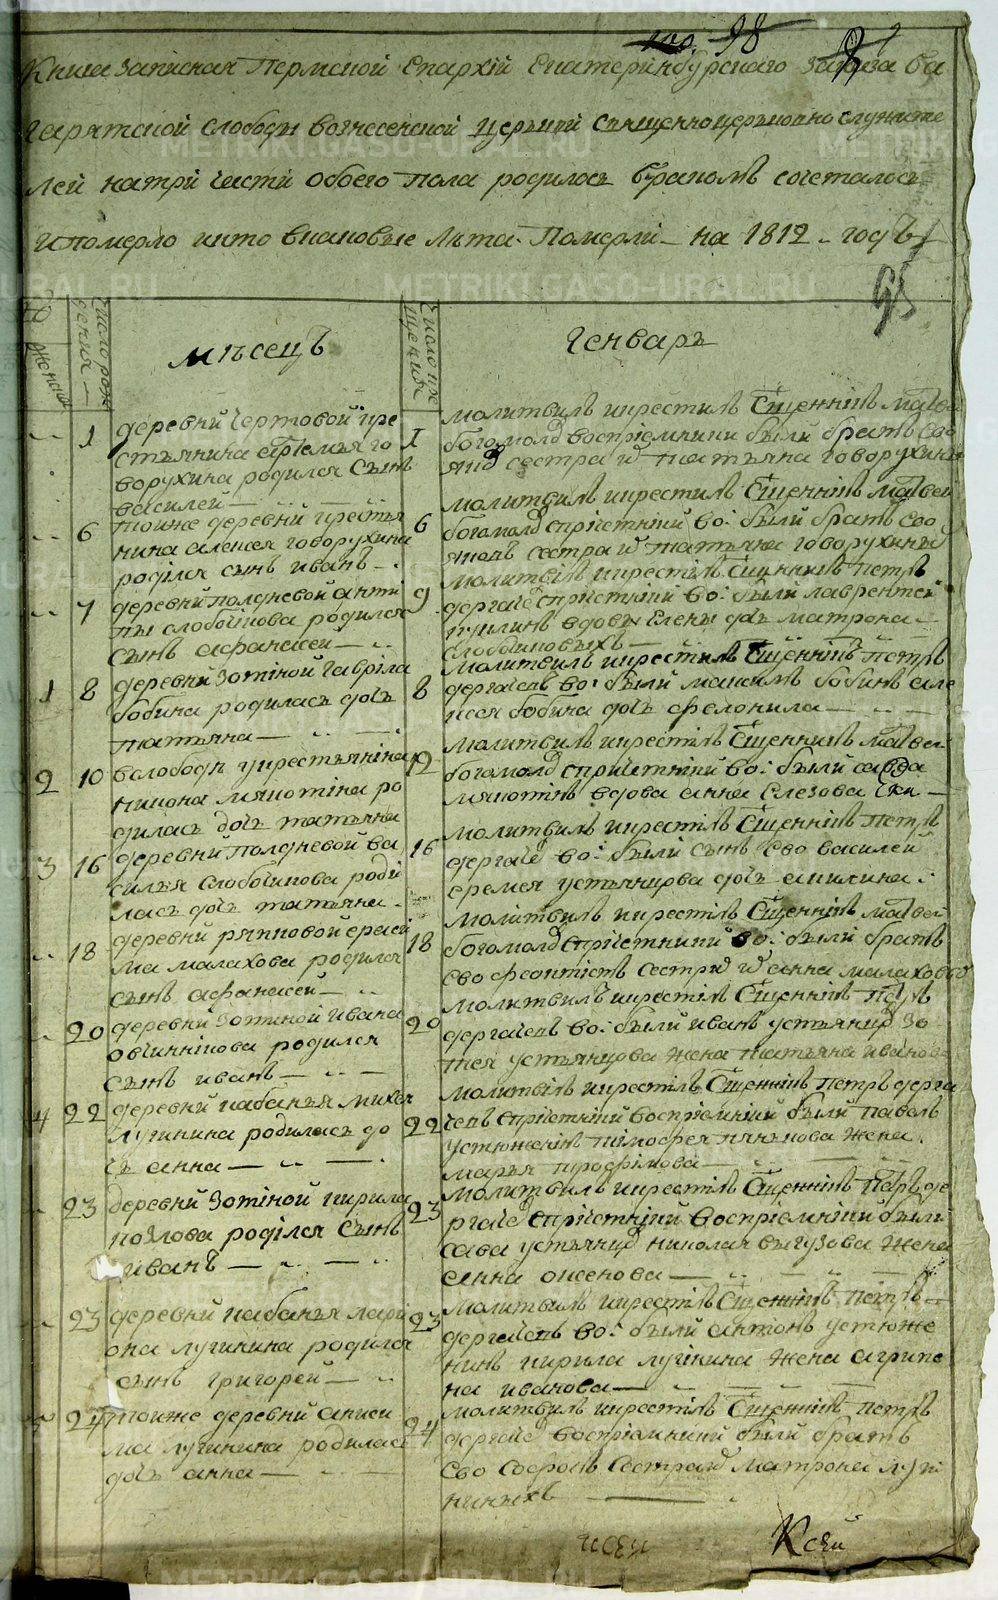 98
Книга записная Пермской Епархiи Екатеринбургскаго заказа Ба
гарятской слободы вознесенской церькви священноцерьковнослужите
лей на три части обоего пола родилось браком сочеталось
и померло и кто в каковые лѣта Померли на 1812 годъ
95
число рож
дения
мѣсецъ
число кре
щения
Генварь
женска
1
деревни чертовой кре
стьянина артемья го
ворухина родился сынъ
василей
1
молитвилъ и крестилъ Сщенникъ матвей
богомолов восприемники были братъ ево
сестра татьяна говорухины
6
тоиже деревни крестья
нина алексея говорухина
родился сынъ иванъ
6
молитвилъ и крестилъ Сщенникъ матвей
богомолов спричетники во: были братъ ево
яковъ сестра татьяна говорухины
7
деревни полдневой анти
пы слободчикова родился
сынъ афанасей
9
молитвилъ и крестилъ Сщенникъ петръ
дергачев спричетники во: были лаврентей
вдовы Елены дочь матрона
слободчиковыхъ
1
8
деревни Зотиной гаврила
бобина родилась дочь
татьяна
8
молитвилъ и крестилъ Сщенникъ петръ
дергачевъ во: были максимъ бобинъ але
ксея бобина дочь фелонила
2
10
вслободы крестьянина
никона мякотина ро
дилась дочь татьяна
12
молитвилъ и крестилъ Сщенникъ матвей
богомолов спричетники во: были савва
мякотинъ вдова анна Слезова
3
16
деревни полдневой ва
силья слободчикова роди
лась дочь татьяна
16
молитвилъ и крестилъ Сщенникъ петръ
дергачев во: были сынъ Ево василей
еремея устьянцова дочь акилина
18
деревни ряпковой ерасей
ма малахова родился
сынъ афанасей
18
молитвилъ и крестилъ Сщенникъ матвей
богомолов спричетники во: были братъ
Ево феоктистъ Сестра анна малаховы
20
деревни Зотиной ивана
овчинникова родился
сынъ иванъ
20
молитвилъ и крестилъ Сщенникъ петръ
дергачевъ во: были иванъ устьянцов зо
тея устьянцова жена татьяна иванова
4
22
деревни кабанья михея
лугинина родилась до
чь анна
22
молитвилъ и крестилъ Сщенникъ петръ дерга
чевъ спричетники восприемники были павелъ
устюженинъ тимофея пянкова жена
марья трофимова
23
деревни Зотиной кирила
козлова родился сынъ
иванъ
23
молитвилъ и крестилъ Сщенникъ петръ де
ргачев спричетники восприемники были
сава устьянцов николая выгузова жена
анна оксенова
23
деревни кабанья лари
она лугинина родился
сынъ григорей
23
молитвилъ и крестилъ Сщенникъ петръ
дергачевъ во: были антонъ устюже
нинъ кирила лугинина жена агрипе
на иванова
24
тоиже деревни аниси
ма лугинина родилась
дочь анна
24
молитвилъ и крестилъ Сщенникъ петръ
дергачев восприемники были братъ
Ево сафронъ Сестра матрона луги
нинихъ
METRIKI.GASO-URAL.RU